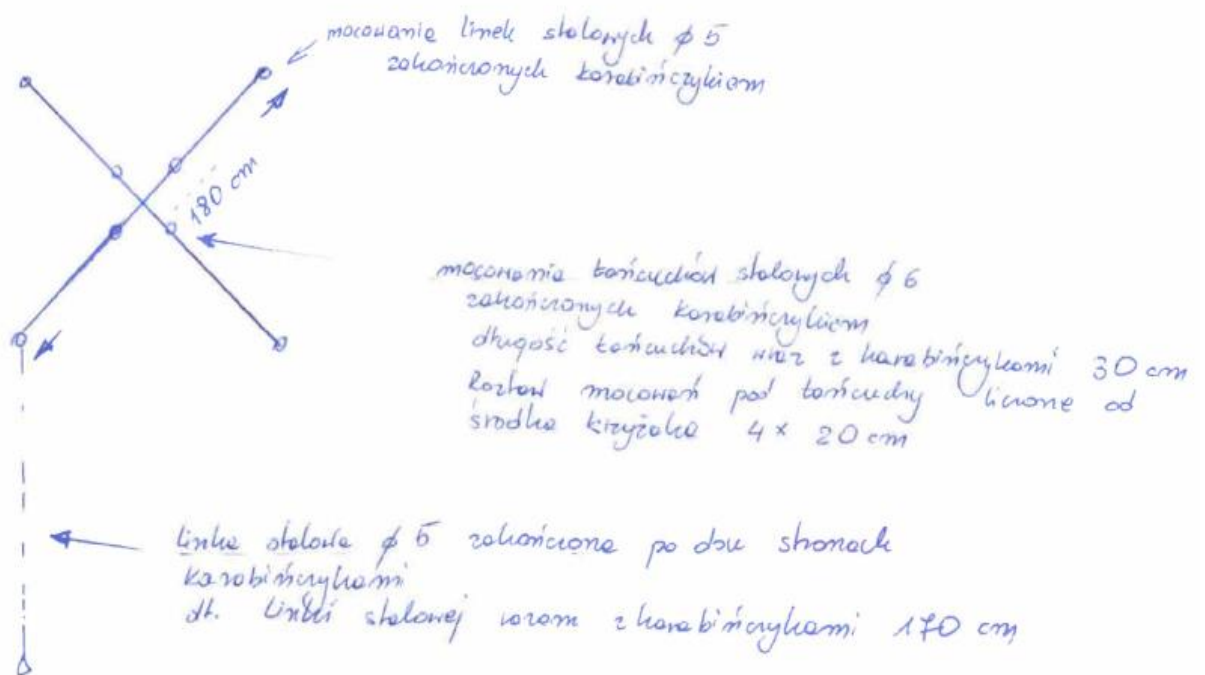 mocowanie linek stalowych ϕ 5
zakończonych karabińczykiem
180 cm
mocowanie łańcuchów stalowych ϕ 6
zakończonych karabińczykiem
długość łańcuchów wraz z karabińczykami 30 cm
Rozstaw mocowań pod łańcuchy liczone od
środka krzyżaka 4 x 20 cm
linka stalowa ϕ 5 zakończona po obu stronach
karabińczykami
dł. linki stalowej wraz z karabińczykami 170 cm